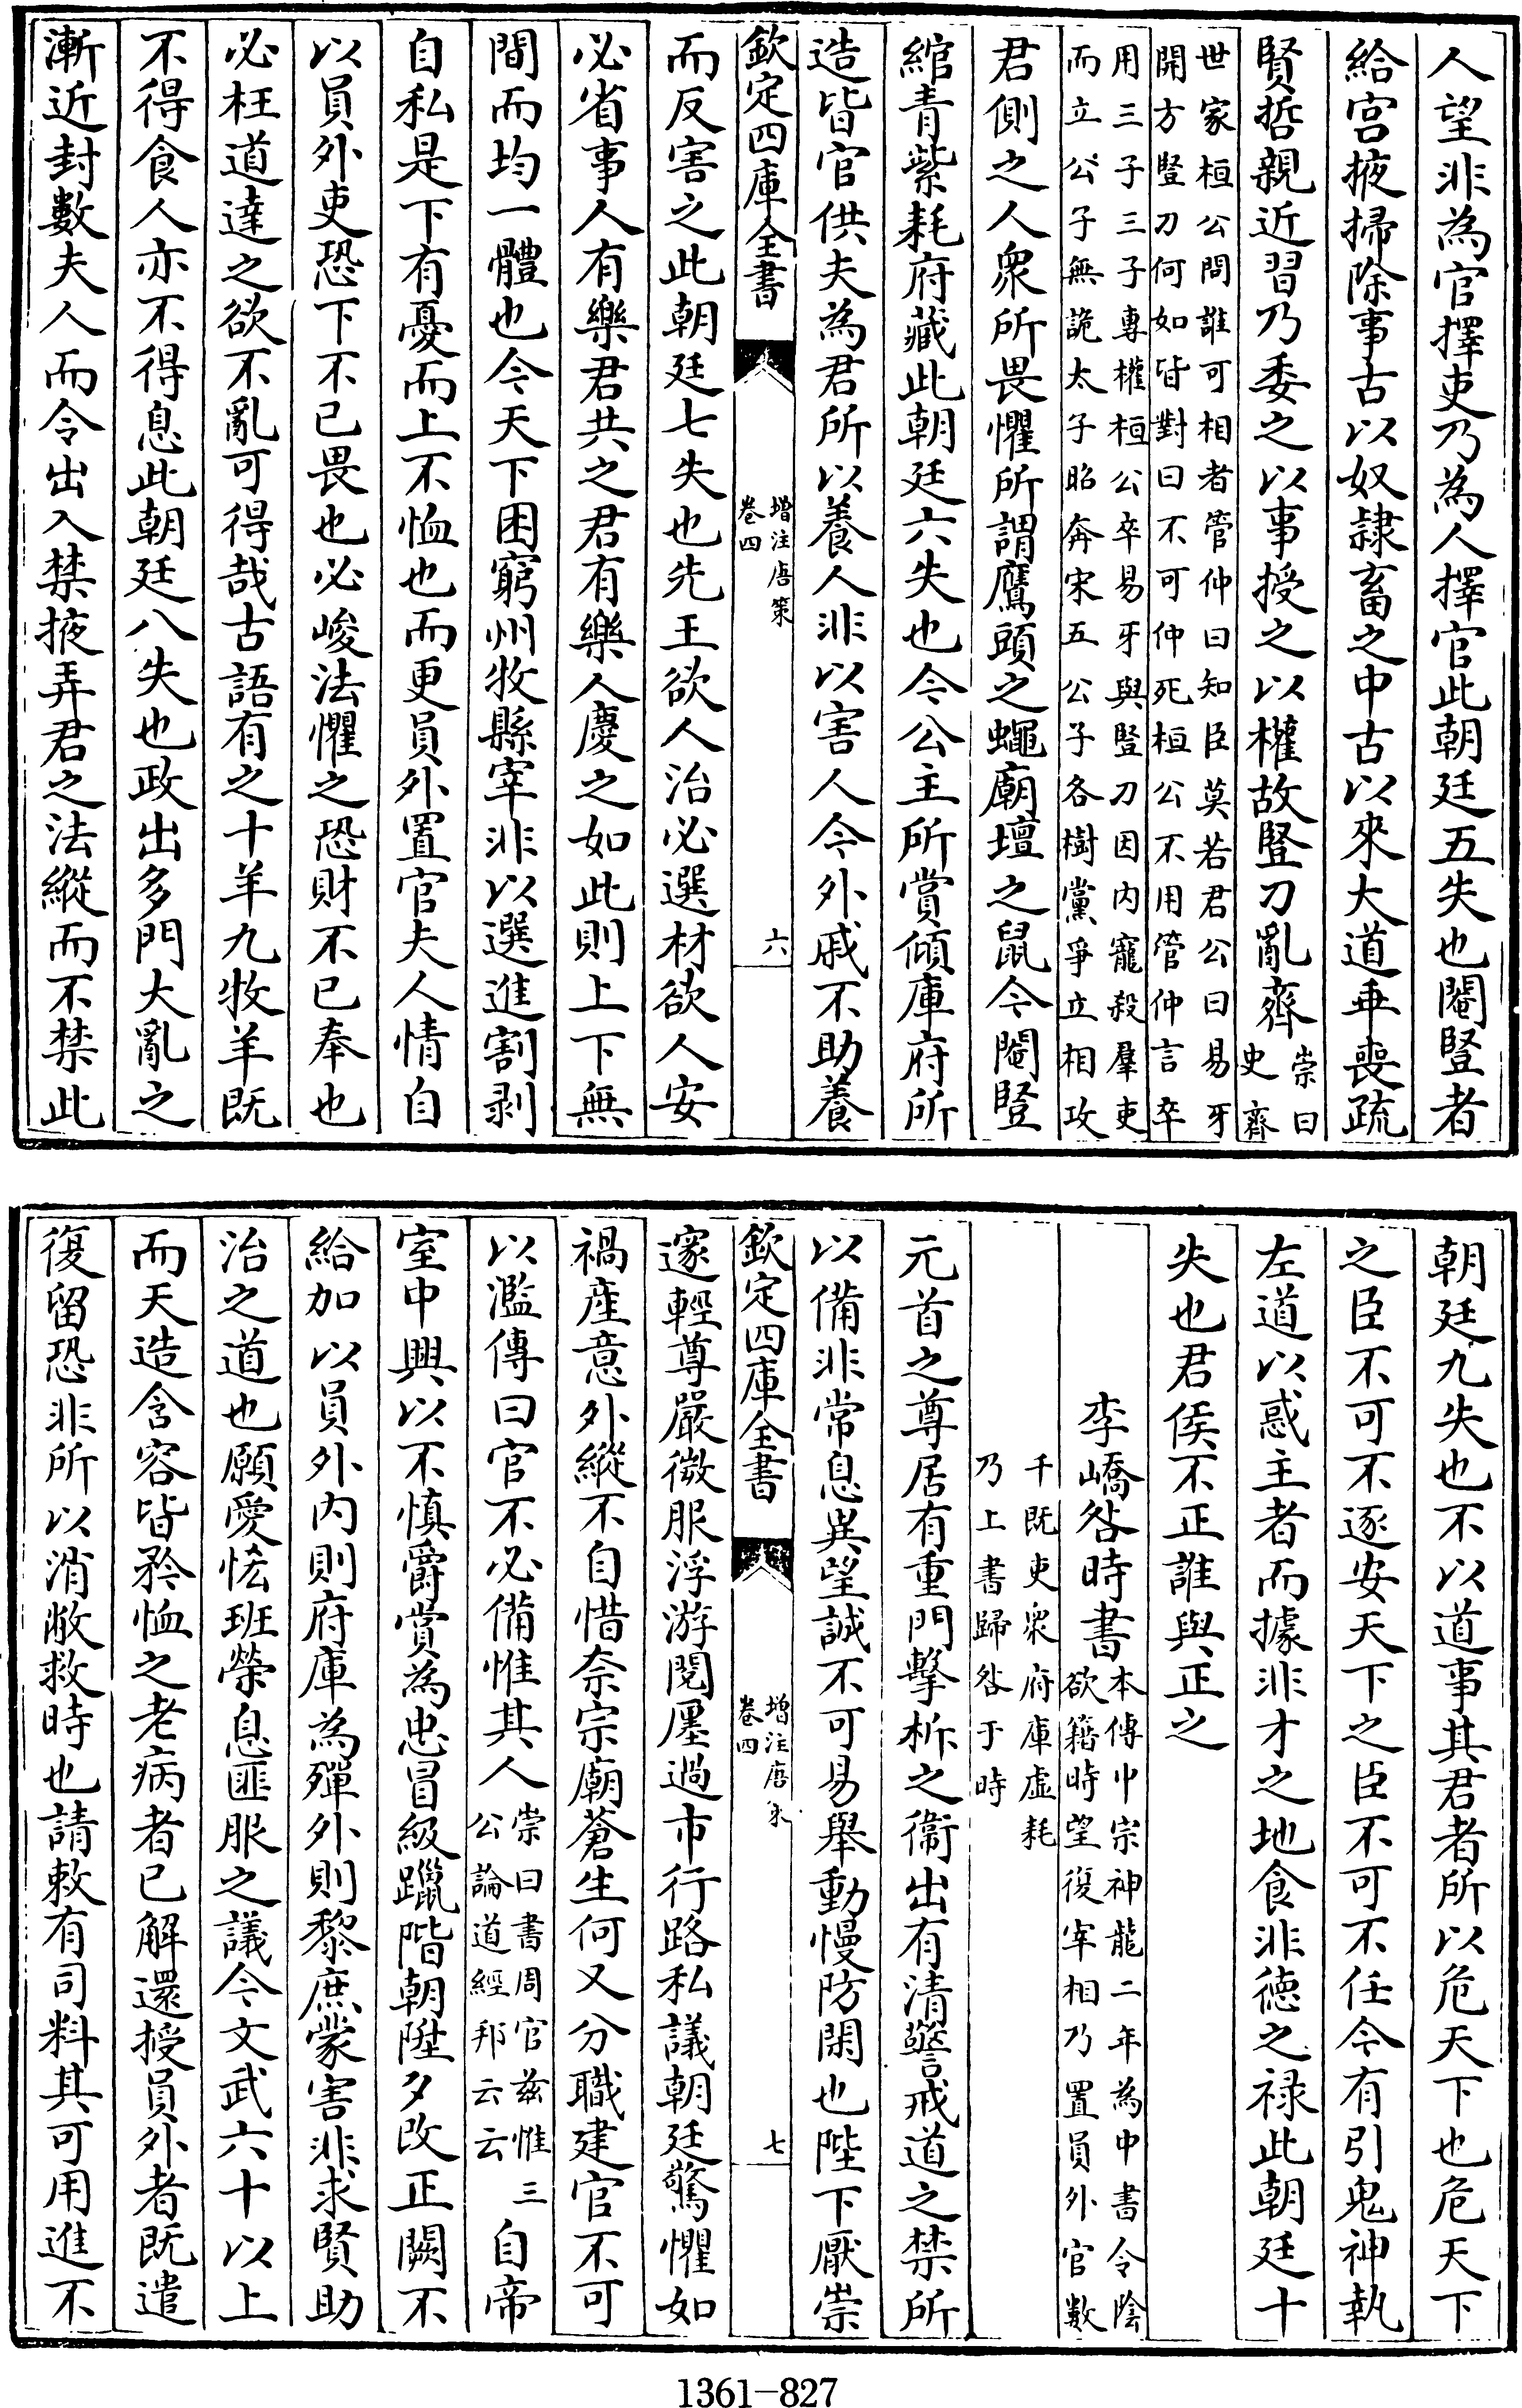 人望非為官擇吏乃為人擇官此朝廷五失也閹豎者
給宮掖掃除事古以奴隸畜之中古以來大道乖喪疏
賢哲親近習乃委之以事授之以權故豎刀亂齊崇曰史齊
世家桓公問誰可相者管仲曰知臣莫若君公曰易牙
開方豎刀何如皆對曰不可仲死桓公不用管仲言卒
用三子三子專權桓公卒易牙與豎刀因內寵殺羣吏
而立公子無詭太子昭奔宋五公子各樹黨爭立相攻
君側之人衆所畏懼所謂鷹頭之蠅廟壇之鼠今閹豎
綰青紫耗府藏此朝廷六失也今公主所賞傾庫府所
造皆官供夫為君所以養人非以害人今外戚不助養
欽定四庫全書
增注唐策
卷四
六
而反害之此朝廷七失也先王欲人治必選材欲人安
必省事人有樂君共之君有樂人慶之如此則上下無
間而均一體也今天下困窮州牧縣宰非以選進割剥
自私是下有憂而上不恤也而更員外置官夫人情自
以員外吏恐下不已畏也必峻法懼之恐財不已奉也
必枉道達之欲不亂可得哉古語有之十羊九牧羊既
不得食人亦不得息此朝廷八失也政出多門大亂之
漸近封數夫人而令出入禁掖弄君之法縱而不禁此
朝廷九失也不以道事其君者所以危天下也危天下
之臣不可不逐安天下之臣不可不任今有引鬼神執
左道以惑主者而據非才之地食非德之祿此朝廷十
失也君侯不正誰與正之
李嶠咎時書本傳中宗神龍二年為中書令陰
欲籍時望復宰相乃置員外官數
千既吏衆府庫虛耗
乃上書歸咎于時
元首之尊居有重門擊柝之衞出有清警戒道之禁所
以備非常息異望誠不可易舉動慢防閑也陛下厭崇
欽定四庫全書
增注唐策
卷四
七
邃輕尊嚴微服浮游閱廛過市行路私議朝廷驚懼如
禍產意外縱不自惜奈宗廟蒼生何又分職建官不可
以濫傳曰官不必備惟其人崇曰書周官兹惟三公論道經邦云云自帝
室中興以不慎爵賞為忠冒級躐階朝陞夕改正闕不
給加以員外內則府庫為殫外則黎庶蒙害非求賢助
治之道也願愛恡班榮息匪服之議今文武六十以上
而天造含容皆矜恤之老病者已解還授員外者既遣
復留恐非所以消敝救時也請敕有司料其可用進不
1361-827